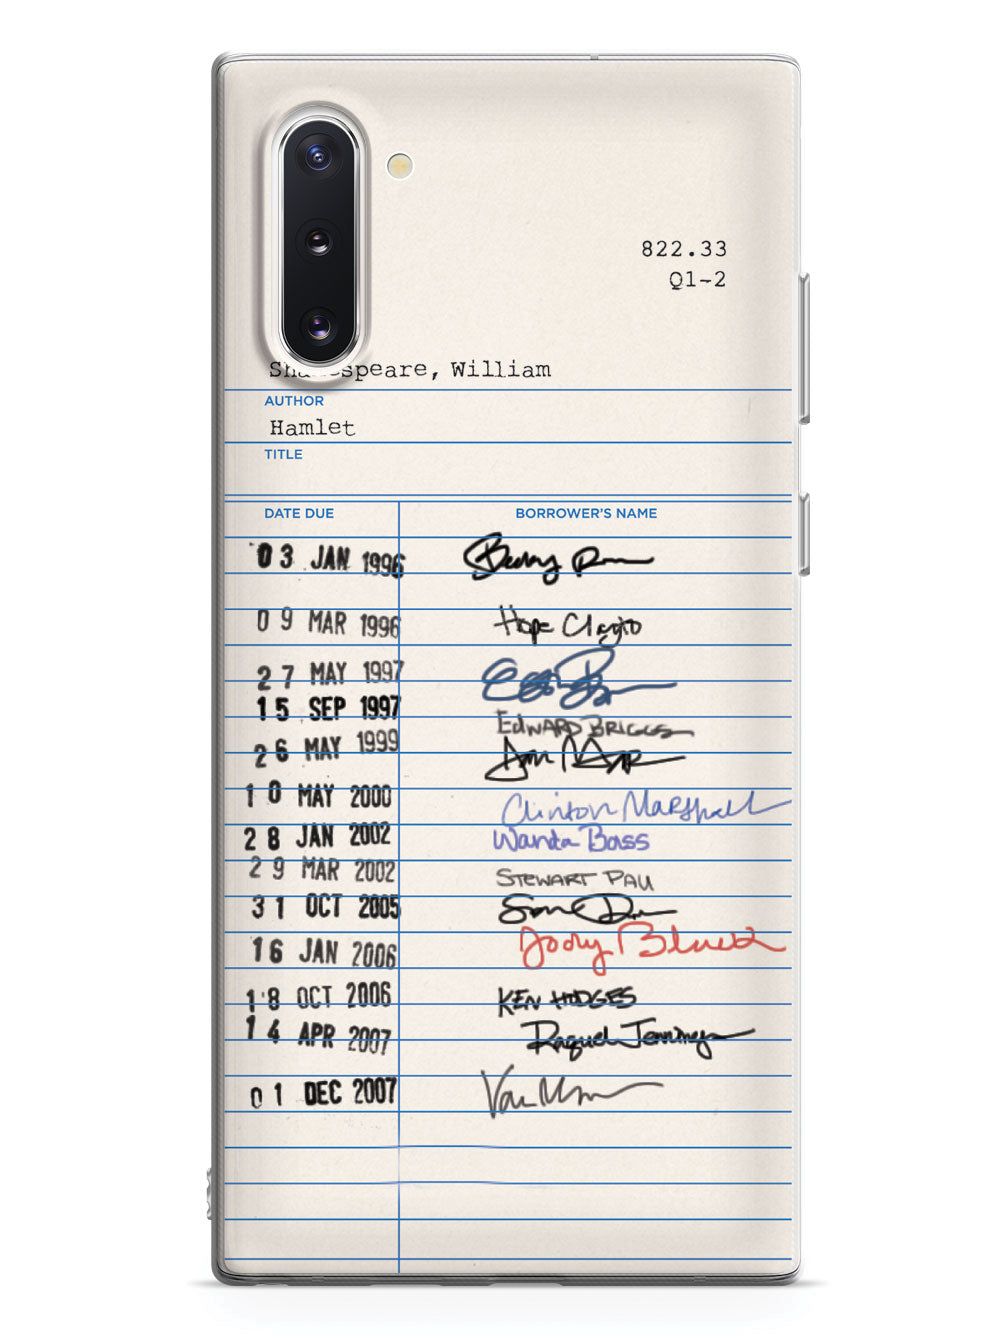 822.33
Q1-2
Shakespeare, William
AUTHOR
Hamlet
TITLE
DATE DUE BORROWER'S NAME
03 JAN 1996
09 MAR 1996 Hope Clayto
27 MAY 1997
15 SEP 1997 EDWARD BRIGGS
26 MAY 1999
10 MAY 2000 Clinton Marshall
28 JAN 2002 Wanda Bass
29 MAR 2002 STEWART PAU
31 OCT 2005
16 JAN 2006 Jody Black
18 OCT 2006 KEN HODGES
14 APR 2007 Raquel Jennings
01 DEC 2007 Van